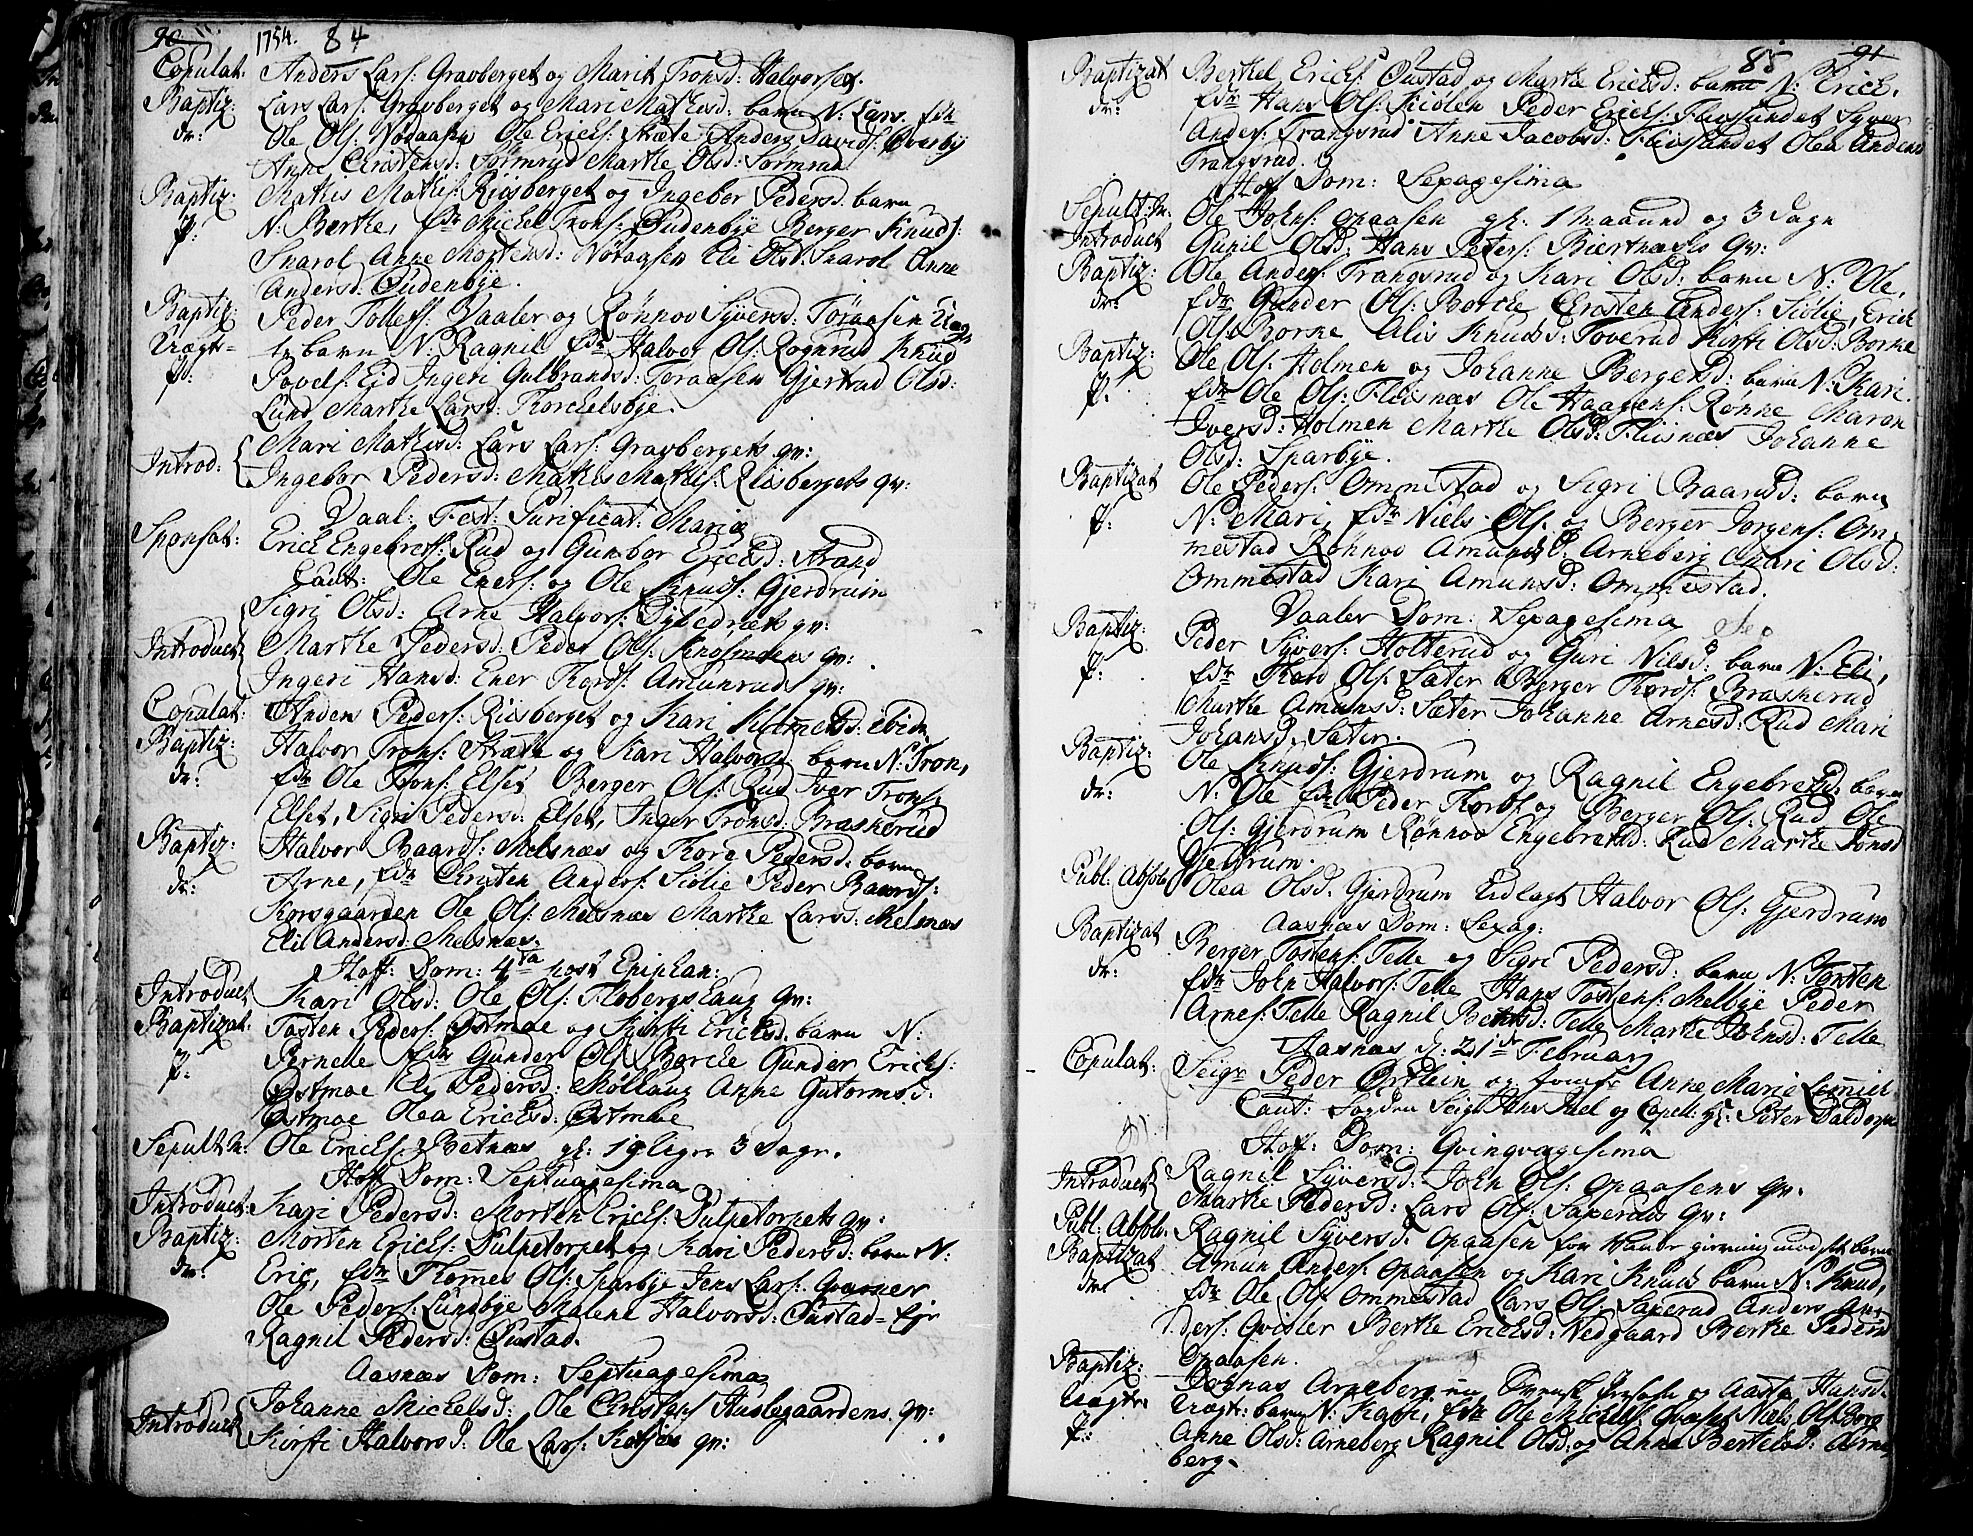 90 1754. 84
Copulat: Anders Lars: Gravberget og Marit Tronsd: Halvorset.
Baptiz: Lars Lars: Gravberget og Mari Mathisd: barn N: Lars. fdr
dr: Ole Ols: Nödaasen Ole Ericks: Stræte Anders Davids: Överby
Anne Christens: Sormryd Marthe Olsd: Sormrud
Baptiz: Mathis Mathis: Riisberget og Ingebor Pedersd: barn
p: N: Berthe, fdr Mickel Trons: Oudenbye Berger Knuds:
Snarol Anne Mortensd: Nötaasen Eli Olsd: Snarol Anne
Andersd: Oudenbye.
Baptiz: Peder Tollefs: Vaaler og Rönnov Syversd: Toraasen Uæg-
Uægt- te barn N: Ragnil fdr Halvor Ols: Rognrud Knud
p: Povels: Eid Ingeri Gulbrandsd: Toraasen Gjertrud Olsd:
Lund Marthe Larsd: Thorckelsbye.
Mari Mathisd: Lars Lars: Gravbergets qv:
Introd: Ingebor Pedersd: Mathis Mathis: Riisbergets qv:
Vaal: Fest: Purificat: Mariæ
Sponsat: Erick Engebrets: Rud og Gunbor Ericksd: Strand
Caut: Ole Eners: og Ole Knuds: Gjerdrum
Sigri Olsd: Arne Halvors: Dybedræts qv:
Introduct Marthe Pedersd: Peder Ols: Knosmoens qv:
Ingeri Hansd: Ener Thords: Amunruds qv:
Copulat: Anders Peders: Riisberget og Kari Klemetsd: ibid:
Baptiz: Halvor Trons: Stræte og Kari Halvorsd: barn N: Tron,
dr: fdr Ole Trons: Elset Berger Ols: Rud Iver Trons:
Elset, Sigri Pedersd: Elset, Inger Tronsd: Braskerud
Baptiz: Halvor Baards: Melsnæs og Thore Pedersd: barn
dr: Arne, fdr Christen Anders: Siölie Peder Baards:
Korsgaarden Ole Ols: Melsnæs Marthe Larsd: Melsnæs
Eli Andersd: Melsnæs.
Hoff: Dom: 4ta post Epiphan:
Introduct Kari Olsd: Ole Ols: Flobergshaug qv:
Baptizat: Tosten Peders: Östmoe og Kjersti Ericksd: barn N:
p: Pernelle fdr Gunder Ols: Borcke Gunder Ericks:
Östmoe Ely Pedersd: Möllaug Anne Gutormsd:
Östmoe Olea Ericksd: Östmoe
Sepult M: Ole Ericks: Betnæs gl: 19 Uger 3 Dage.
Hoff Dom: Septuagesima
Introduct: Kari Pedersd: Morten Ericks: Pulpetorpets qv:
Baptiz: Morten Ericks: Pulpetorpet og Kari Pedersd: barn N:
dr: Eric, fdr Thomes Ols: Sparbye Jens Lars:
Ole Peders: Lundbye Malene Halvorsd: Oustad-Eje
Ragnil Pedersd: Oustad.
Aasnæs Dom: Septuagesima
Johanne Mickelsd: Ole Christens: Huslegaardens qv:
Introduct Kersti Halvorsd: Ole Lars: qv:
85 91
Baptizat Berthel Ericks: Oustad og Marthe Ericksd: barn N: Erick.
dr: fdr Hans Ols: Kiölen Peder Ericks: Flissundet Syver
Anders: Trangsrud Anne Jacobsd: Flissundet Olea Andersd
Trangsrud.
Hoff Dom: Sexagesima
Sepult: M: Ole Johns: Opaasen gl: 1 Maaned og 3 Dage
Introduct Gunil Olsd: Hans Peders: Biertnæsis qv:
Baptiz: Ole Anders: Trangsrud og Kari Olsd: barn N: Ole,
dr: fdr Gunder Ols: Borcke Cristen Anders: Siölie, Erick
Ols: Borcke Alis Knudsd: Toverud Kirsti Olsd: Borcke
Baptiz: Ole Ols: Holmen og Johanne Bergersd: barn N: Kari.
p: fdr Ole Ols: Fliisnæs Ole Haagens: Rönne Maren
Iversd: Holmen Marthe Olsd: Fliisnæs Johanne
Olsd: Sparbye.
Baptizat Ole Peders: Ommestad og Sigri Baardsd: barn
p: N: Mari, fdr Niels Ols: og Berger Jorgens: Om-
mestad Rönnov Amundsd: Arneberg Mari Olsd:
Ommestad Kari Amunsd: Ommestad.
Vaaler Dom: Sexagesima
Baptiz: Peder Syvers: Holterud og Guri Nilsd: barn N: Eli,
p: fdr Thord Ols: Sæter Berger Thords: Braskerud
Marthe Amunsd: Sæter Johanne Arnesd: Rud Mari
Johansd: Sæter.
Baptiz: Ole Knuds: Gjerdrum og Ragnil Engebretsd: barn
dr: N: Ole fdr Peder Thords: og Berger Ols: Rud Ole
Ols: Gjerdrum Rönnov Engebretsd: Rud Marthe Tronsd
Gjerdrum.
Publ: Absolv: Olea Olsd: Gjerdrum Udlagt Halvor Ols: Gjerdrum
Aasnæs Dom: Sexag:
Baptizat Berger Tostens: Telle og Sigri Pedersd: barn N: Torsten
dr: fdr John Halvors: Telle Hans Tostens: Melbye Peder
Arnes: Telle Ragnil Berthesd: Telle Marthe Johnsd: Telle
Aasnæs d: 21de Februar
Copulat: Seigr Peder Örtlein og Jomfr Anne Marie Lemich
Caut: Seigr Jens Juel og Capell: Hr: Peter Daldorph
Hoff: Dom: Qvinqvagesima
Introduct Ragnil Syversd: John Ols: Opaasens qv:
Marthe Pedersd: Lars Ols: Saxeruds qv:
Publ: Absolv: Ragnil Syversd: Opaasen for
Baptizat Amun Anders: Opaasen og Kari Knudsd: barn N: Knud,
dr: fdr Ole Ols: Ommestad Lars Ols: Saxerud Anders An-
ders: Qvesler Berthe Ericksd: Nedgaard Berthe Pedersd
Opaasen.
Baptiz: Jonas Arneberg en Svensk og Aasta Hansd:
Uægte: Uægte: barn N: Kari, fdr Ole Mickels: Niels Ols: Borg
p: Anne Olsd: Arneberg Ragnil Olsd: og Anne Bertelsd: Arne-
berg.